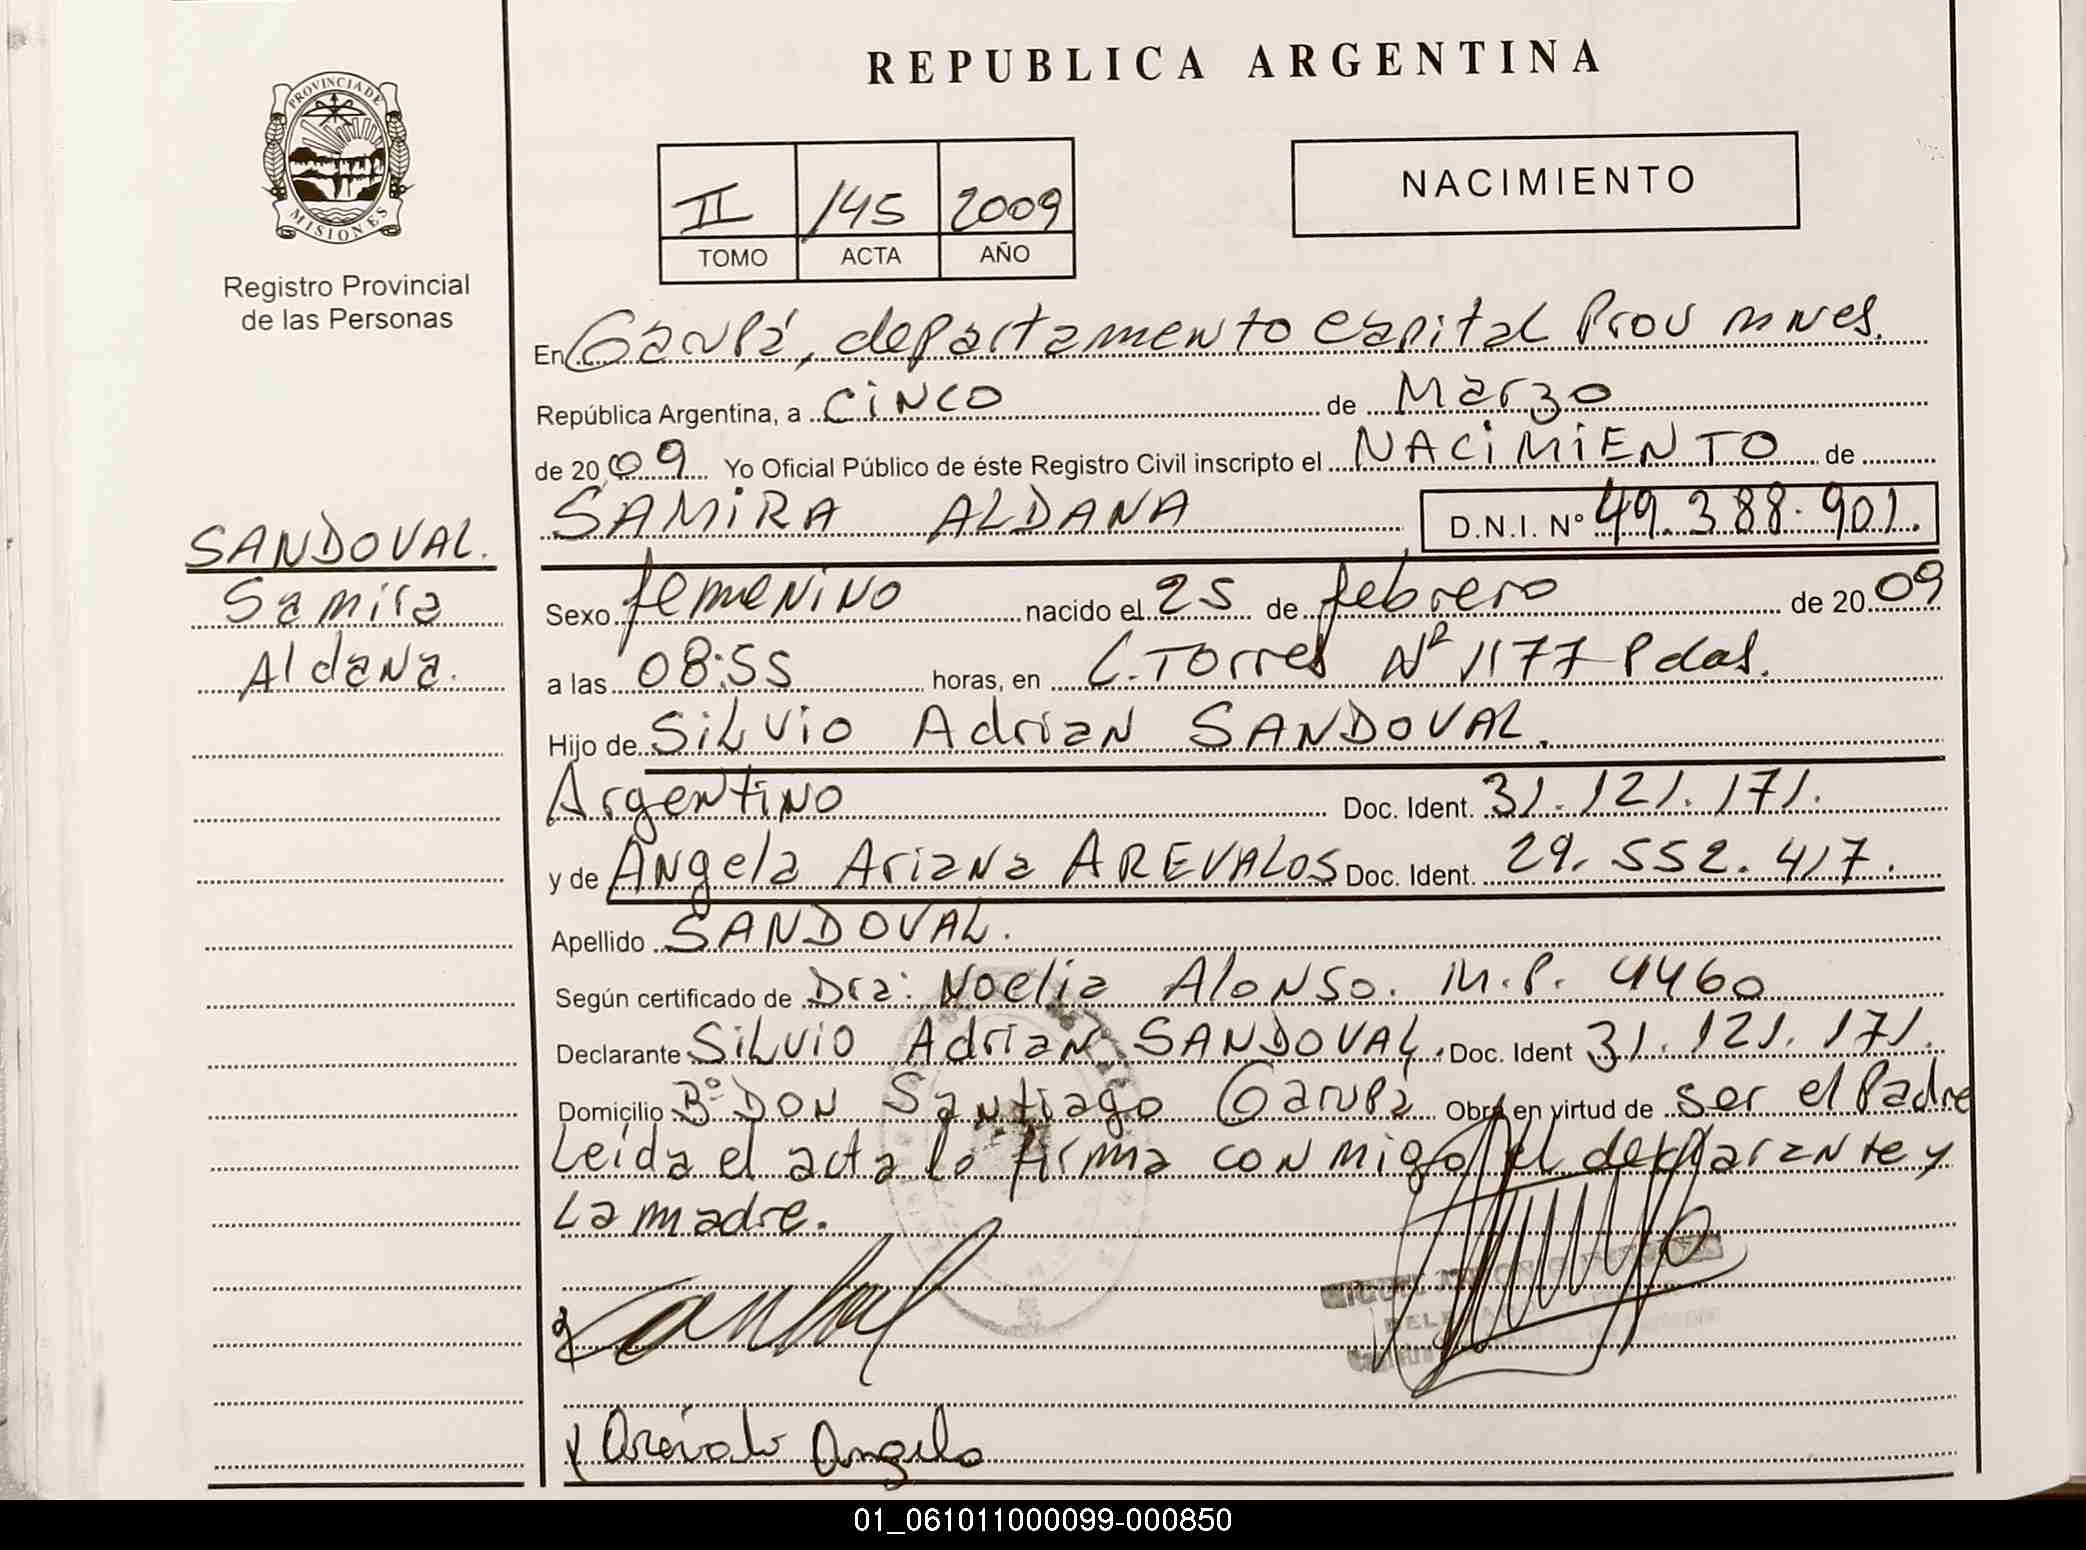 REPUBLICA ARGENTINA
PROVINCIA DE MISIONES
Registro Provincial
de las Personas
II 145 2009
TOMO ACTA AÑO
NACIMIENTO
En Garupá, departamento Capital Prov Mnes.
República Argentina, a cinco de Marzo
de 2009 Yo Oficial Público de éste Registro Civil inscripto el NACIMIENTO de
SAMIRA ALDANA D.N.I. Nº 49.388.901.
SANDOVAL.
Samira
Aldana.
Sexo femenino nacido el 25 de febrero de 2009
a las 08:55 horas, en C. Torres Nº 1177 Pdas.
Hijo de Silvio Adrian SANDOVAL.
Argentino Doc. Ident. 31.121.171.
y de Angela Ariana AREVALOS Doc. Ident. 29.552.417.
Apellido SANDOVAL.
Según certificado de Dra: Noelia Alonso. M.P. 4460
Declarante Silvio Adrian SANDOVAL. Doc. Ident 31.121.171.
Domicilio Bº DON Santiago Garupá Obra en virtud de ser el Padre
Leida el acta la firma conmigo el declarante y
La madre.
Arévalo Angela
01_061011000099-000850